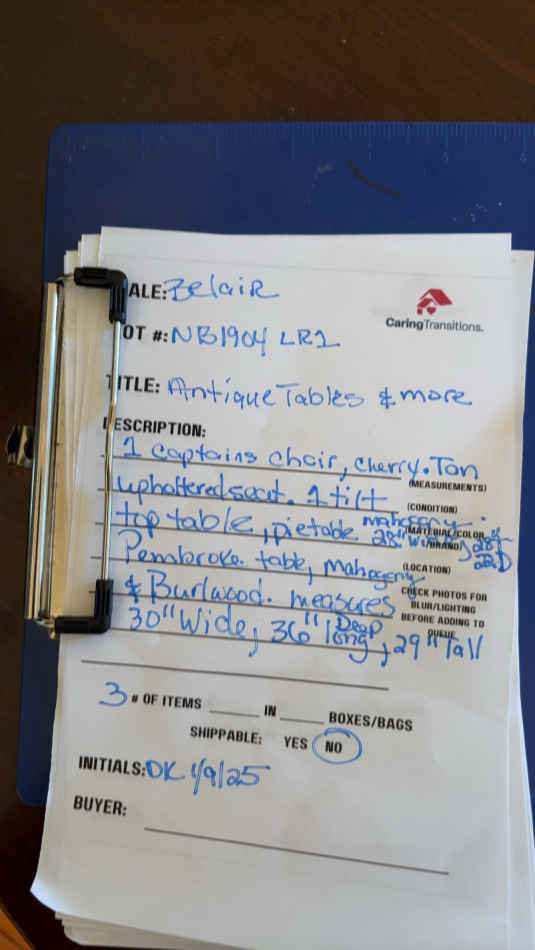 ALE: Belair
CaringTransitions.
OT #: NB1904 LR1
TITLE: Antique Tables & more
DESCRIPTION:
1 Captains chair, cherry. Tan
(MEASUREMENTS)
uphaltered seat. 1 tilt
(CONDITION)
top table, pietable mahogany
(MATERIAL/COLOR
28" Wide, 28"
/BRAND)
22 D
Pembroke table, mahogany
(LOCATION)
& Burlwood. measures
CHECK PHOTOS FOR
BLUR/LIGHTING
BEFORE ADDING TO
QUEUE
30" Wide, 36" long Deep, 29" Tall
3 # OF ITEMS ____ IN ____ BOXES/BAGS
SHIPPABLE: YES NO
INITIALS: DK 1/9/25
BUYER: